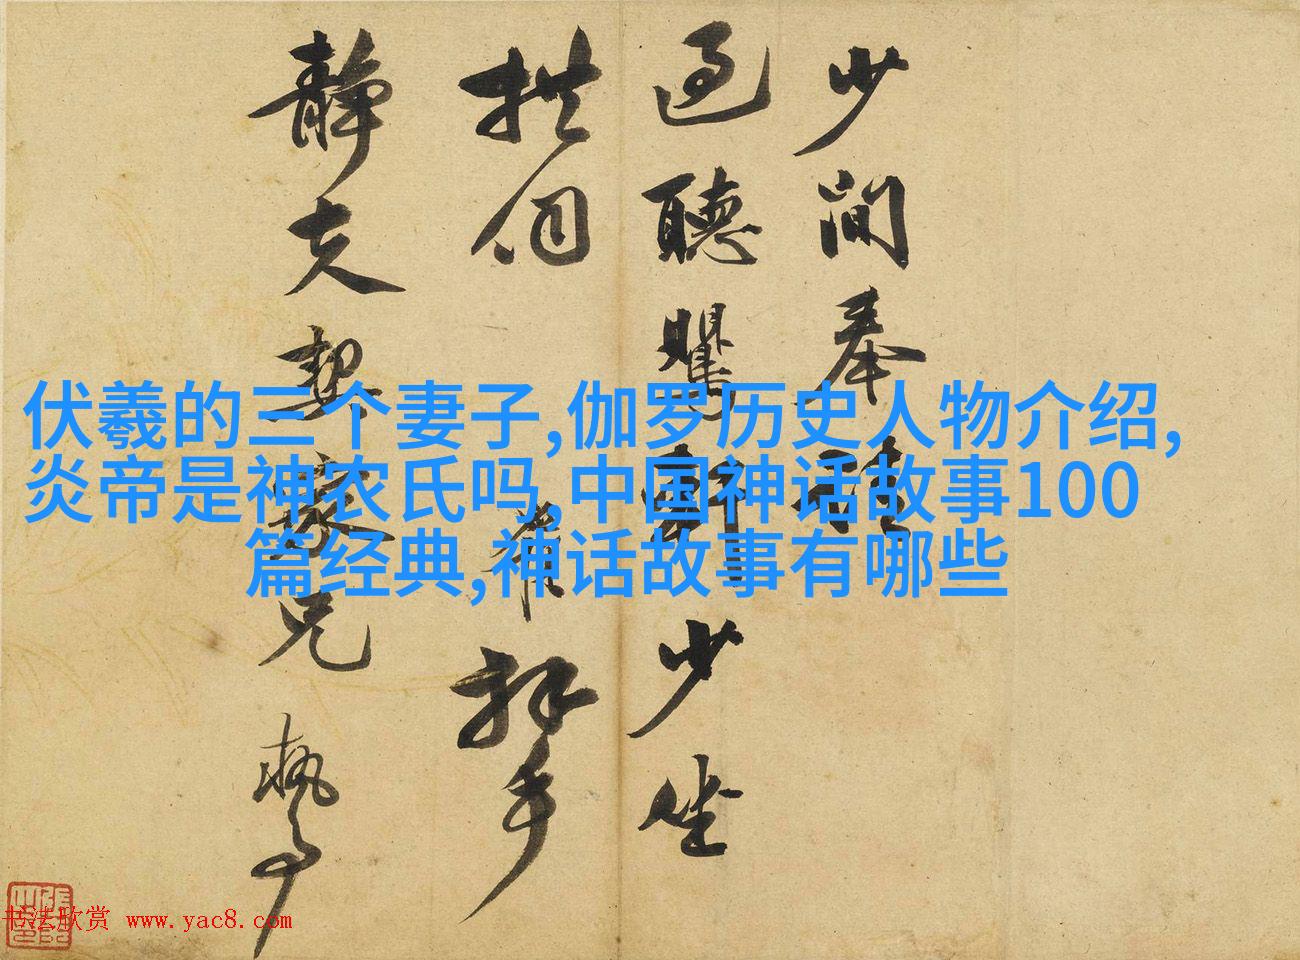 少闲奉
过听鸎
少坐
拱伺
拜手
静夫契
兄
伏羲的三个妻子,伽罗历史人物介绍,
炎帝是神农氏吗,中国神话故事100
篇经典,神话故事有哪些
书法欣赏 www.yac8.com